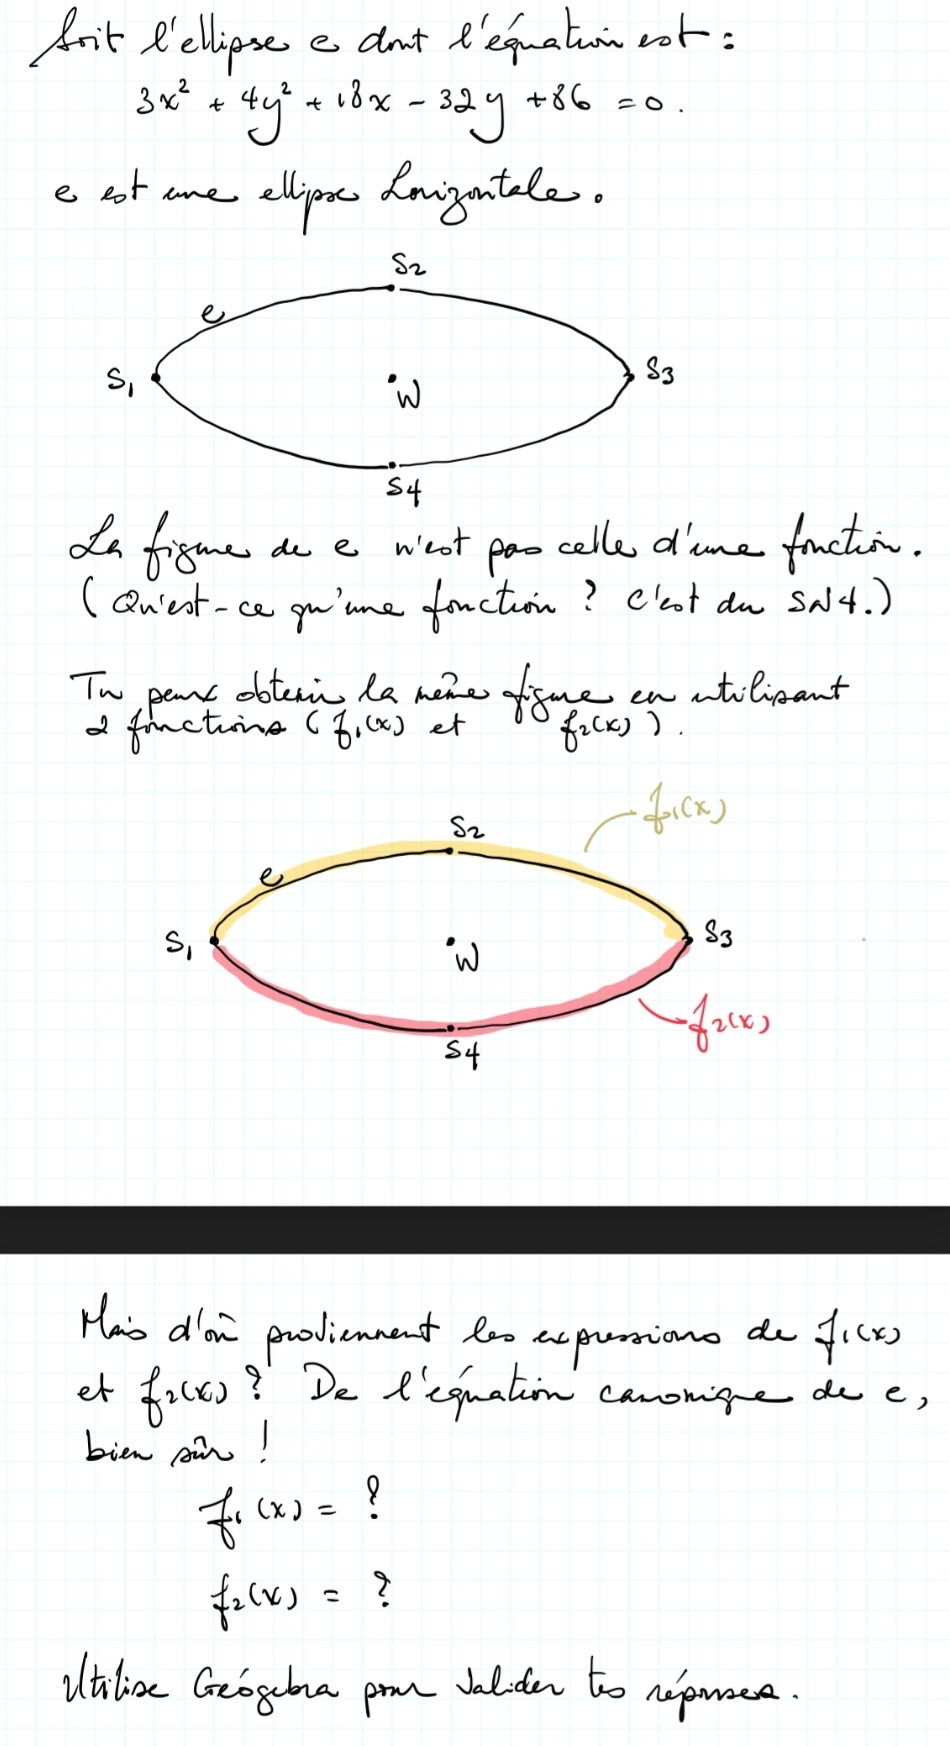 Soit l'ellipse e dont l'équation est :
3x² + 4y² + 18x - 32y + 86 = 0.
e est une ellipse horizontale.
S2
e
S1
W
S3
S4
La figure de e n'est pas celle d'une fonction.
(Qu'est-ce qu'une fonction ? C'est du SN4.)
Tu peux obtenir la même figure en utilisant
2 fonctions (f1(x) et f2(x)).
f1(x)
S2
e
S1
W
S3
f2(x)
S4
Mais d'où proviennent les expressions de f1(x)
et f2(x) ? De l'équation canonique de e,
bien sûr !
f1(x) = ?
f2(x) = ?
Utilise Geógebra pour valider tes réponses.